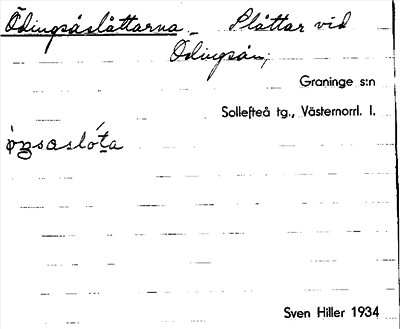 Ödingsåslåttarna – Slåttar vid
Ödingsån;
Graninge s:n
Sollefteå tg., Västernorrl. l.
Sven Hiller 1934